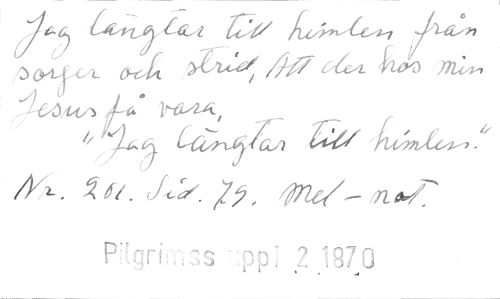 Jag längtar till himlen från
sorger och strid, Att der hos min
Jesus få vara,
"Jag längtar till himlen."
Nr. 201. Sid. 79. Mel-not.
Pilgrimss uppl 2 1870